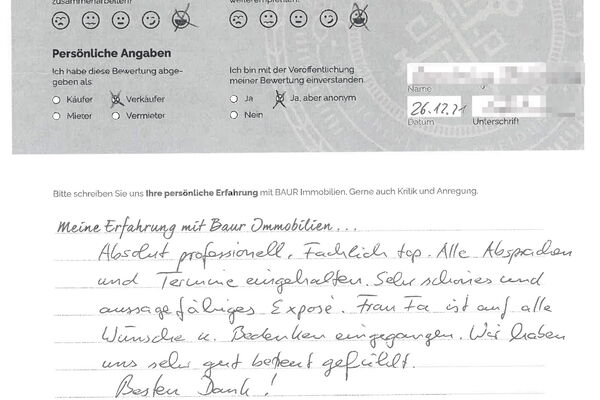 zusammenarbeiten?
weiterempfehlen?
Persönliche Angaben
Ich habe diese Bewertung abge-
geben als
Käufer
Verkäufer
Mieter
Vermieter
Ich bin mit der Veröffentlichung
meiner Bewertung einverstanden.
Ja
Ja, aber anonym
Nein
Name
26.12.21
Datum
Unterschrift
Bitte schreiben Sie uns Ihre persönliche Erfahrung mit BAUR Immobilien. Gerne auch Kritik und Anregung.
Meine Erfahrung mit Baur Immobilien...
Absolut professionell. Fachlich top. Alle Absprachen
und Termine eingehalten. Sehr schönes und
aussagefähiges Exposé. Frau Fa ist auf alle
Wünsche u. Bedenken eingegangen. Wir haben
uns sehr gut betreut gefühlt.
Besten Dank!